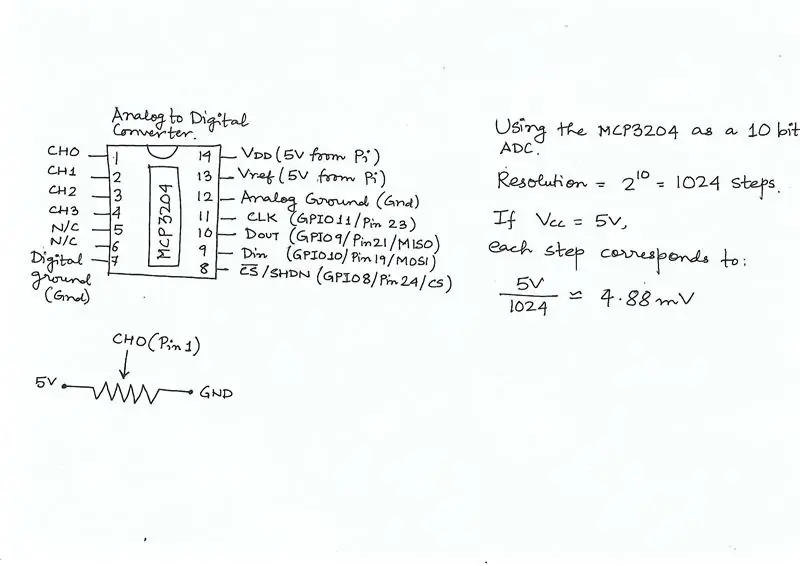 Analog to Digital
Converter.
CH0
CH1
CH2
CH3
N/C
N/C
Digital
ground
(Gnd)
1
2
3
4
5
6
7
MCP3204
14
13
12
11
10
9
8
VDD (5V from Pi)
Vref (5V from Pi)
Analog Ground (Gnd)
CLK (GPIO11/Pin 23)
Dout (GPIO9/Pin21/MISO)
Din (GPIO10/Pin19/MOSI)
C̅S̅/SHDN (GPIO8/Pin24/CS)
CH0 (Pin1)
5V
GND
Using the MCP3204 as a 10 bit
ADC.
Resolution = 2¹⁰ = 1024 steps.
If Vcc = 5V,
each step corresponds to:
5V
1024
≈ 4.88mV